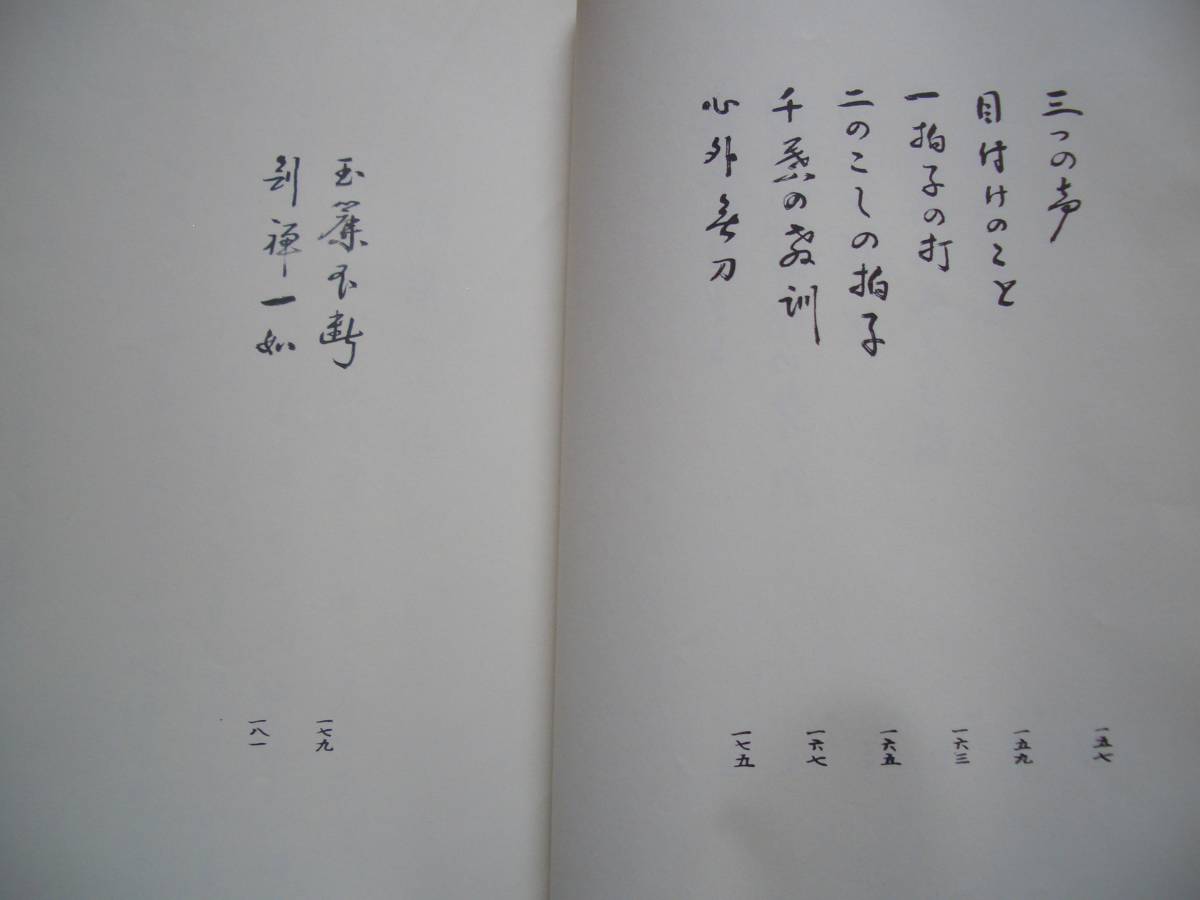 三つの声 一五七
目付けのこと 一五九
一拍子の打 一六三
二のこしの拍子 一六五
千葉の教訓 一六七
心外無刀 一七五
玉簾不断 一七九
剣禅一如 一八一